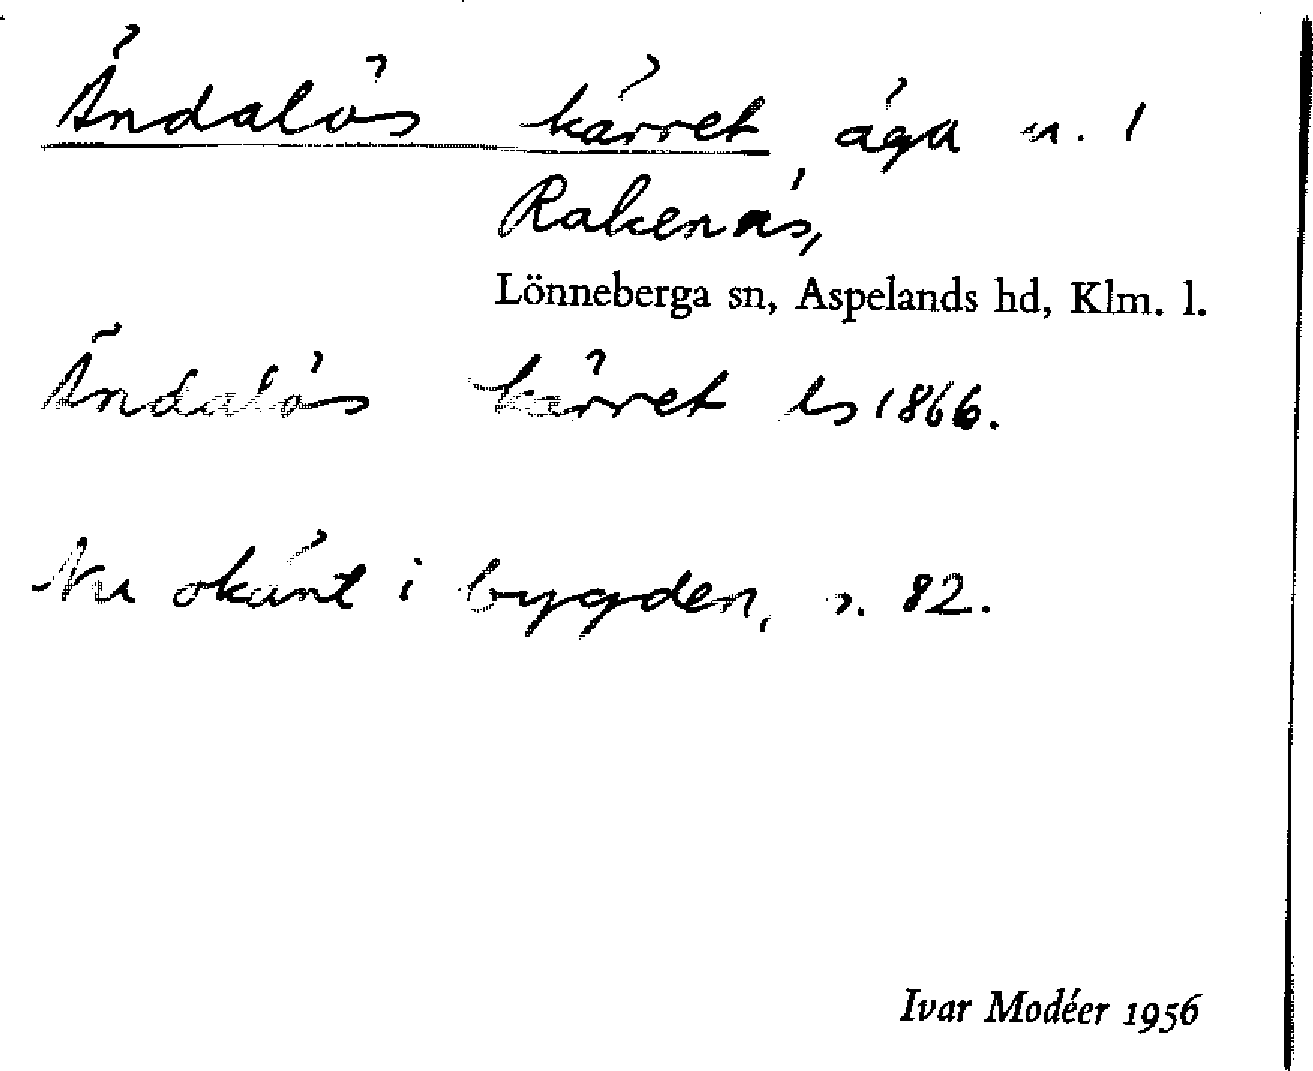 Ändalös kärret, äga u. 1
Rakenäs,
Lönneberga sn, Aspelands hd, Klm. l.
Ändalös kärret ls 1866.
Nu okänt i bygden, s. 82.
Ivar Modéer 1956